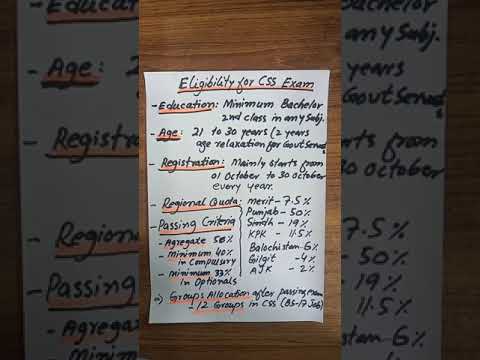 Eligibility for CSS Exam
- Education: Minimum Bachelor
2nd class in any Subj.
- Age: 21 to 30 years (2 years
age relaxation for Govt Servants
- Registration: Mainly starts from
01 October to 30 October
every year.
- Regional Quota: merit - 7.5%
Punjab - 50%
Sindh - 19%
KPK - 11.5%
Balochistan - 6%
Gilgit - 4%
AJK - 2%
- Passing Criteria
- Agregate 50%
- Minimum 40%
in Compulsury
- Minimum 33%
in Optionals
⇒ Groups Allocation after passing exam
- 12 Groups in CSS (BS-17 Job)